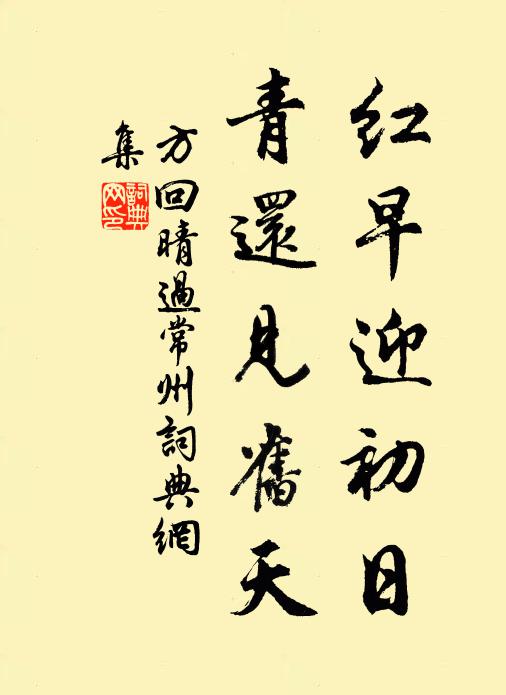 紅早迎初日
青還見舊天
方回晴過常州詞典網
集
詞典
网印